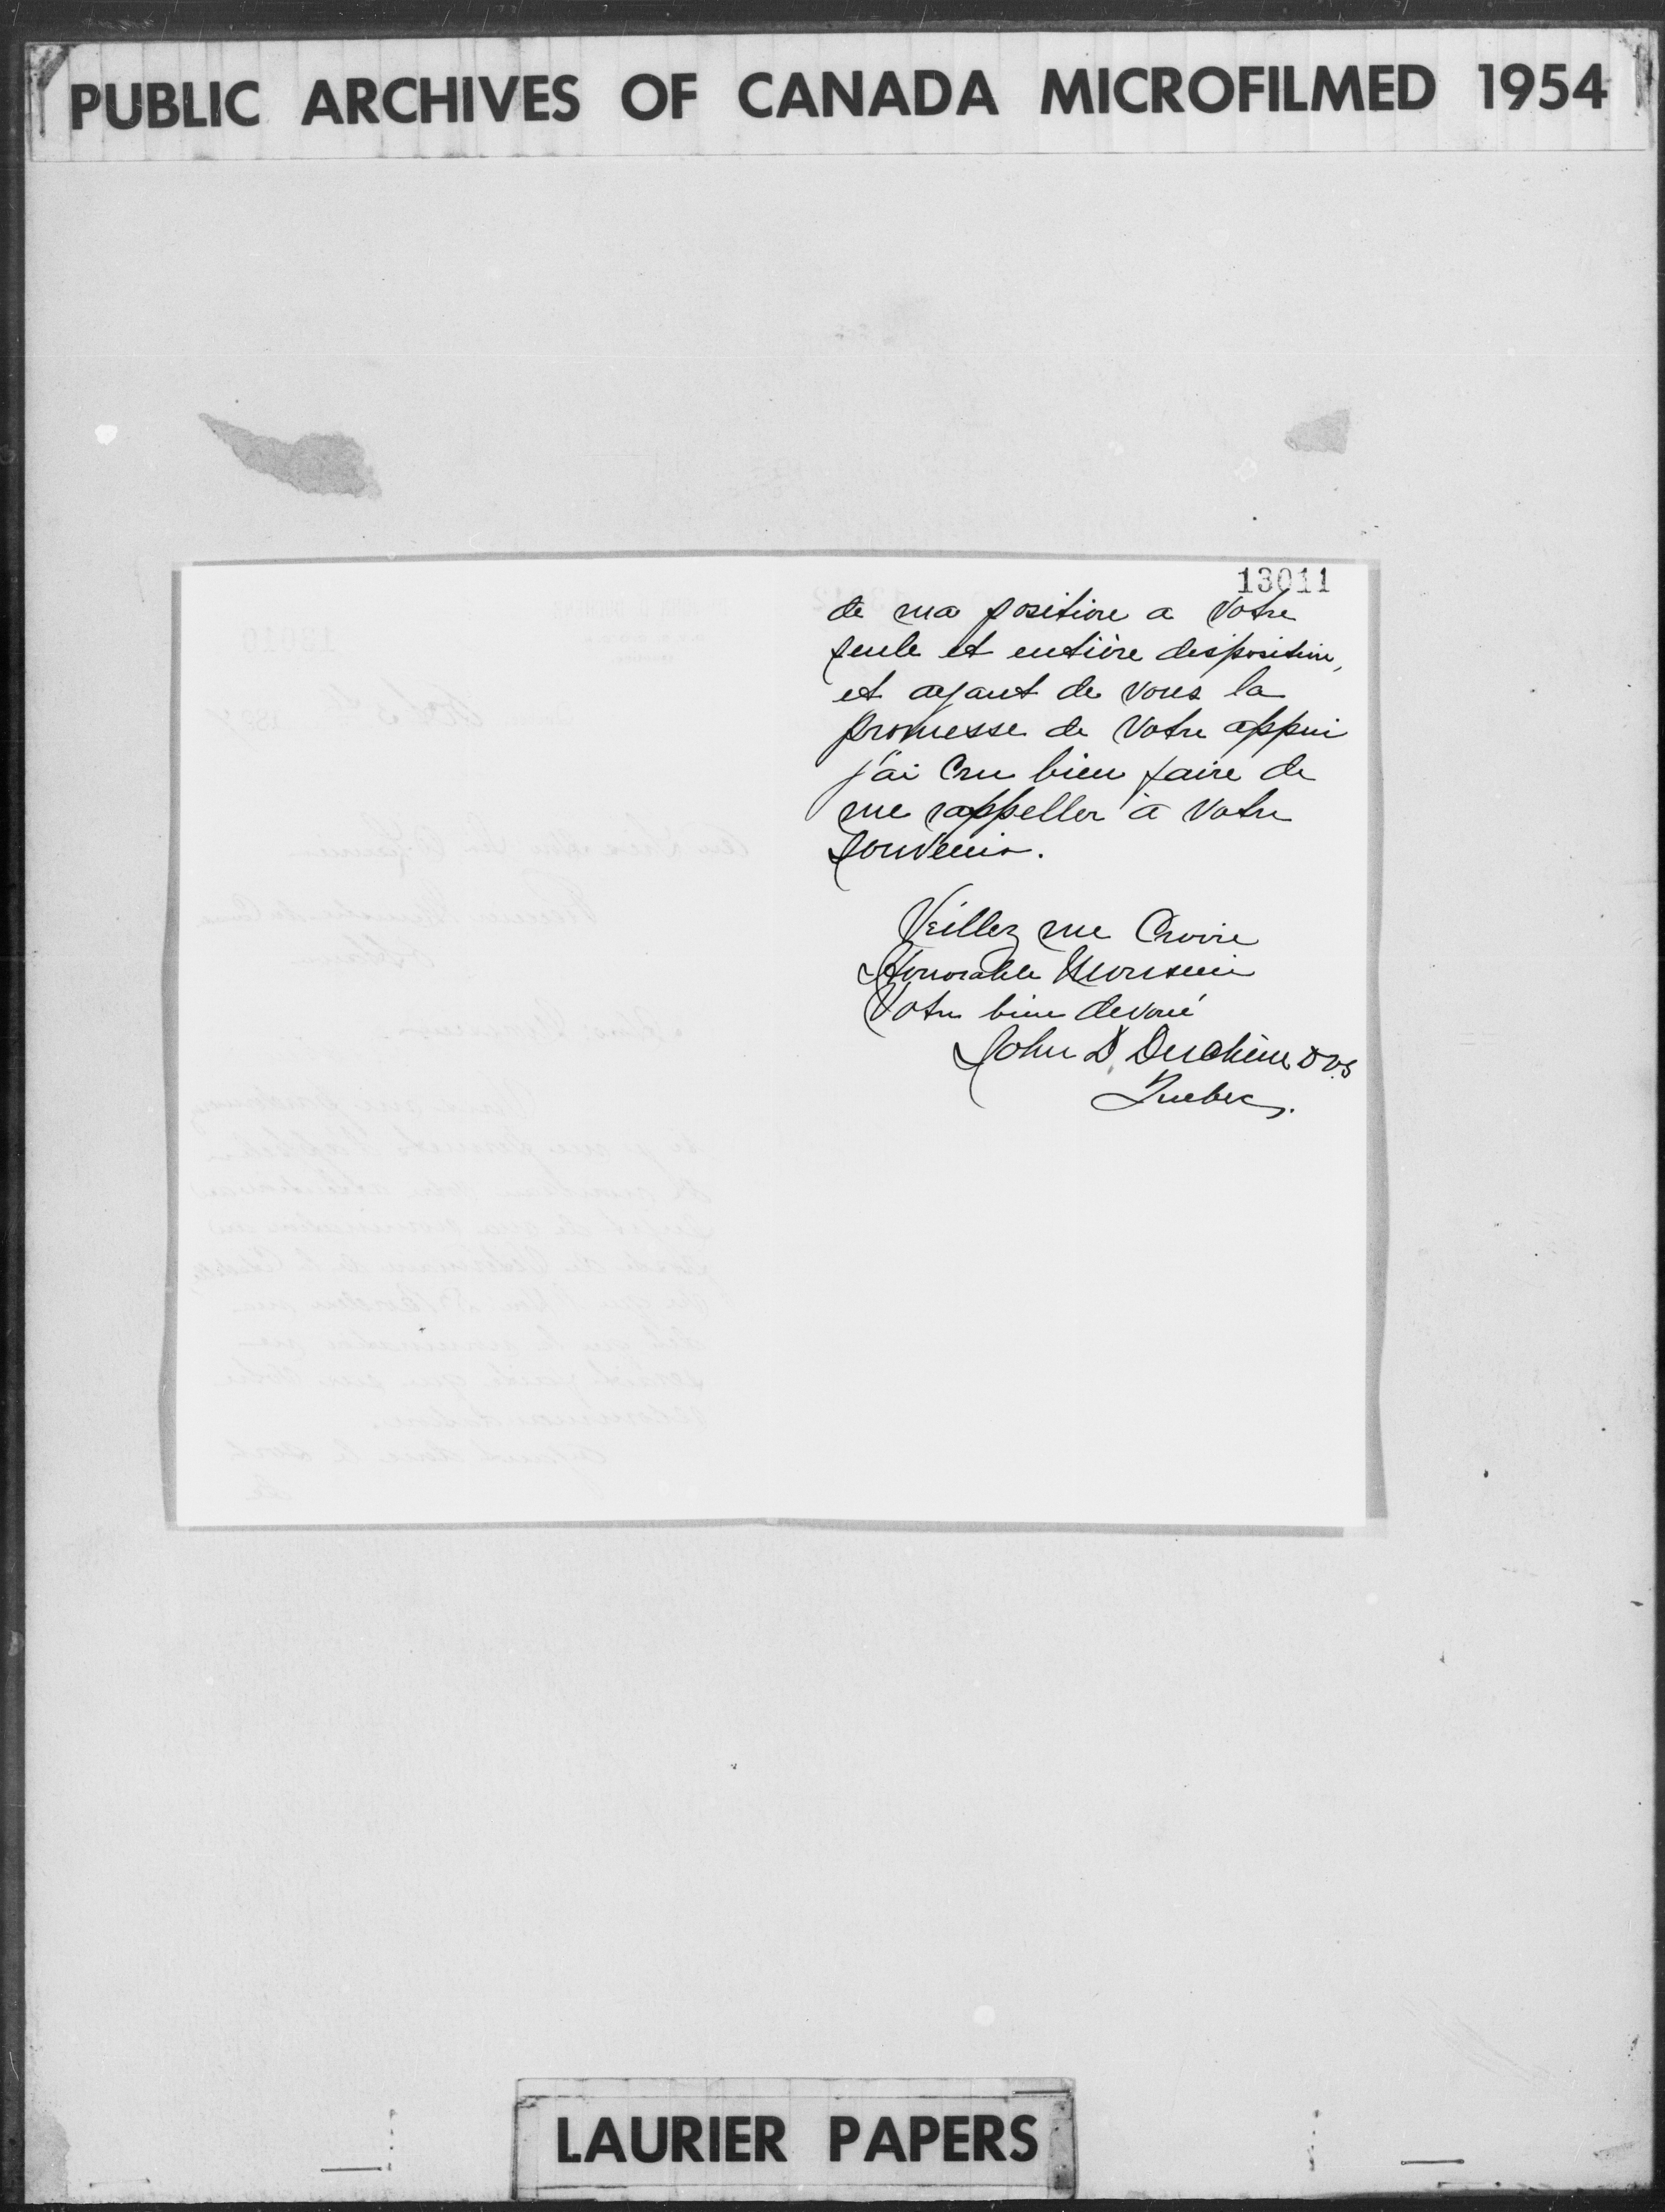 PUBLIC ARCHIVES OF CANADA MICROFILMED 1954
13011
de ma position a Votre
seule et entière disposition,
et ayant de vous la
promesse de Votre appui
j'ai Cru bien faire de
me rappeller à Votre
Souvenir.
Veillez me Croire
Honorable Monsieur
Votre bien devoué
John D Duchène DVS
Quebec.
LAURIER PAPERS